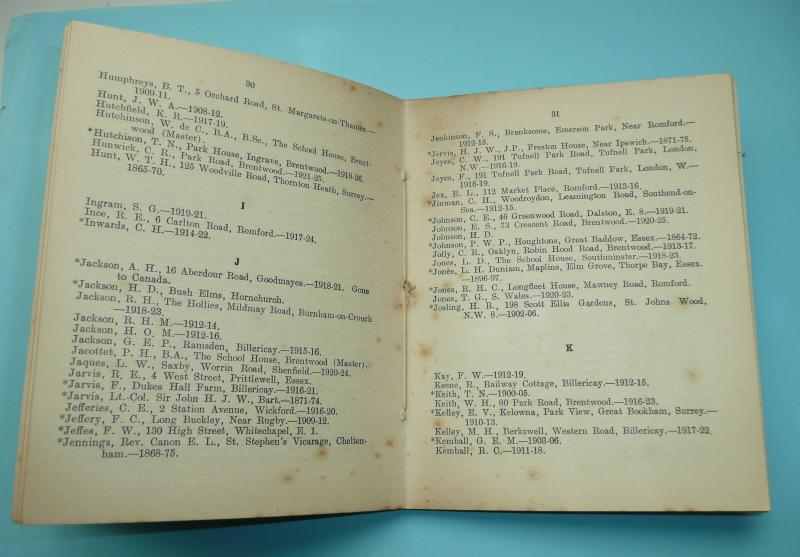 30
Humphreys, B. T., 5 Orchard Road, St. Margarets-on-Thames.—
1909-11.
Hunt, J. W. A.—1908-12.
Hutchfield, K. R.—1917-19.
Hutchinson, W. de C., B.A., B.Sc., The School House, Brent-
wood (Master).
*Hutchison, T. N., Park House, Ingrave, Brentwood.—1918-26.
Hunwick, C. R., Park Road, Brentwood.—1921-25.
Hunt, W. T. H., 125 Woodville Road, Thornton Heath, Surrey.—
1865-70.
I
Ingram, S. G.—1919-21.
Ince, R. E., 6 Carlton Road, Romford.—1917-24.
*Inwards, C. H.—1914-22.
J
*Jackson, A. H., 16 Aberdour Road, Goodmayes.—1918-21. Gone
to Canada.
*Jackson, H. D., Bush Elms, Hornchurch.
Jackson, R. H., The Hollies, Mildmay Road, Burnham-on-Crouch
—1918-23.
Jackson, R. H. M.—1912-14.
Jackson, H. O. M.—1912-16.
Jackson, G. E. P., Ramsden, Billericay.—1915-16.
Jacottet, P. H., B.A., The School House, Brentwood (Master).
Jaques, L. W., Saxby, Worrin Road, Shenfield.—1920-24.
Jarvis, R. E., 4 West Street, Prittlewell, Essex.
*Jarvis, F., Dukes Hall Farm, Billericay.—1916-21.
*Jarvis, Lt.-Col. Sir John H. J. W., Bart.—1871-74.
Jefferies, C. E., 2 Station Avenue, Wickford.—1916-20.
*Jeffery, F. C., Long Buckley, Near Rugby.—1909-12.
*Jeffes, F. W., 130 High Street, Whitechapel, E. 1.
*Jennings, Rev. Canon E. L., St. Stephen's Vicarage, Chelten-
ham.—1868-75.
31
Jenkinson, F. S., Branksome, Emerson Park, Near Romford.—
1912-15.
*Jervis, H. J. W., J.P., Freston House, Near Ipswich.—1871-75.
Jeyes, C. W., 191 Tufnell Park Road, Tufnell Park, London,
N.W.—1916-19.
Jeyes, F., 191 Tufnell Park Road, Tufnell Park, London, W.—
1916-19.
Jex, E. L., 112 Market Place, Romford.—1913-16.
*Jinman, C. H., Woodroydon, Leamington Road, Southend-on-
Sea.—1912-15.
*Johnson, C. E., 46 Greenwood Road, Dalston, E. 8.—1919-21.
Johnson, E. S., 73 Crescent Road, Brentwood.—1920-25.
Johnson, H. D.
*Johnson, P. W. P., Houghtons, Great Baddow, Essex.—1864-72.
Jolly, C. R., Oaklyn, Robin Hood Road, Brentwood.—1913-17.
Jones, L. D., The School House, Southminster.—1918-23.
*Jones, L. H. Duniam, Maplins, Elm Grove, Thorpe Bay, Essex.
—1896-97.
*Jones, R. H. C., Longfleet House, Mawney Road, Romford.
Jones, T. G., S. Wales.—1920-23.
*Josling, H. R., 198 Scott Ellis Gardens, St. Johns Wood,
N.W. 8.—1902-06.
K
Kay, F. W.—1912-19.
Keene, R., Railway Cottage, Billericay.—1912-15.
*Keith, T. N.—1900-05.
Keith, W. H., 80 Park Road, Brentwood.—1916-23.
*Kelley, E. V., Kelowna, Park View, Great Bookham, Surrey.—
1910-13.
Kelley, M. H., Berkswell, Western Road, Billericay.—1917-22.
*Kemball, G. E. M.—1903-06.
Kemball, R. C.—1911-18.